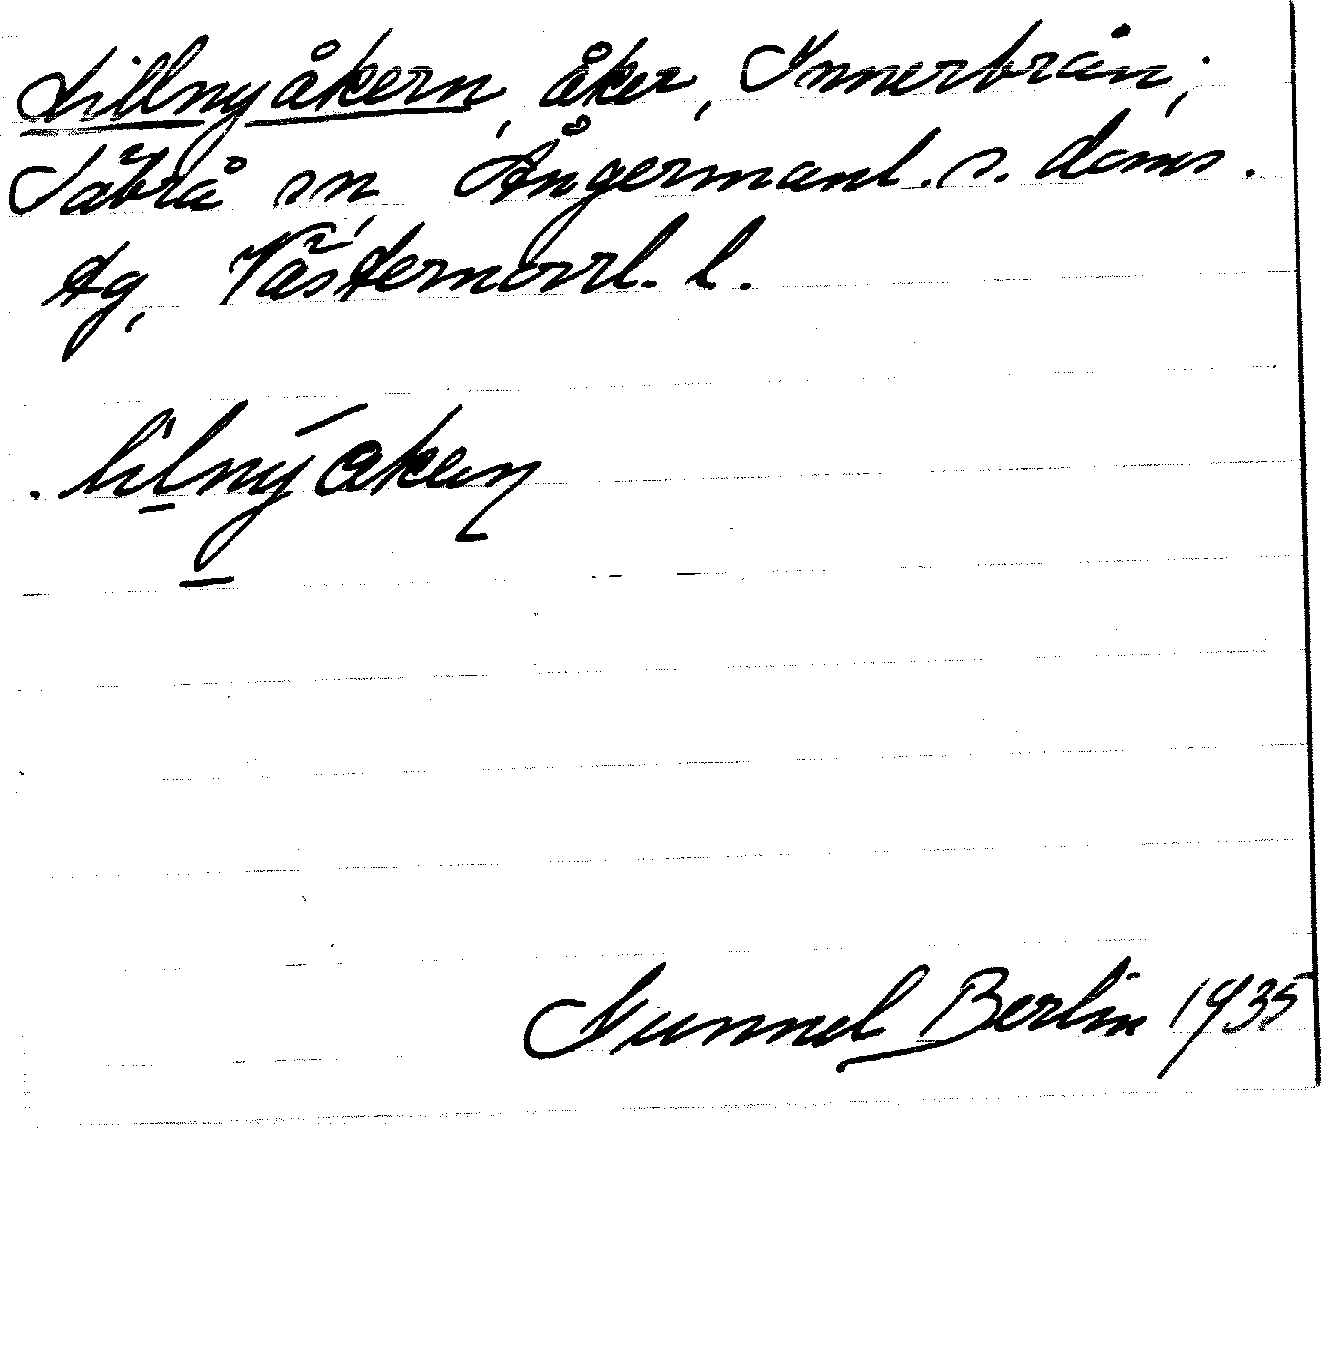 Lillnyåkern, åker, Innerbrån,
Säbrå sn, Ångermanl. s. doms.
tg, Västernorrl. l.
Gunnel Berlin 1935